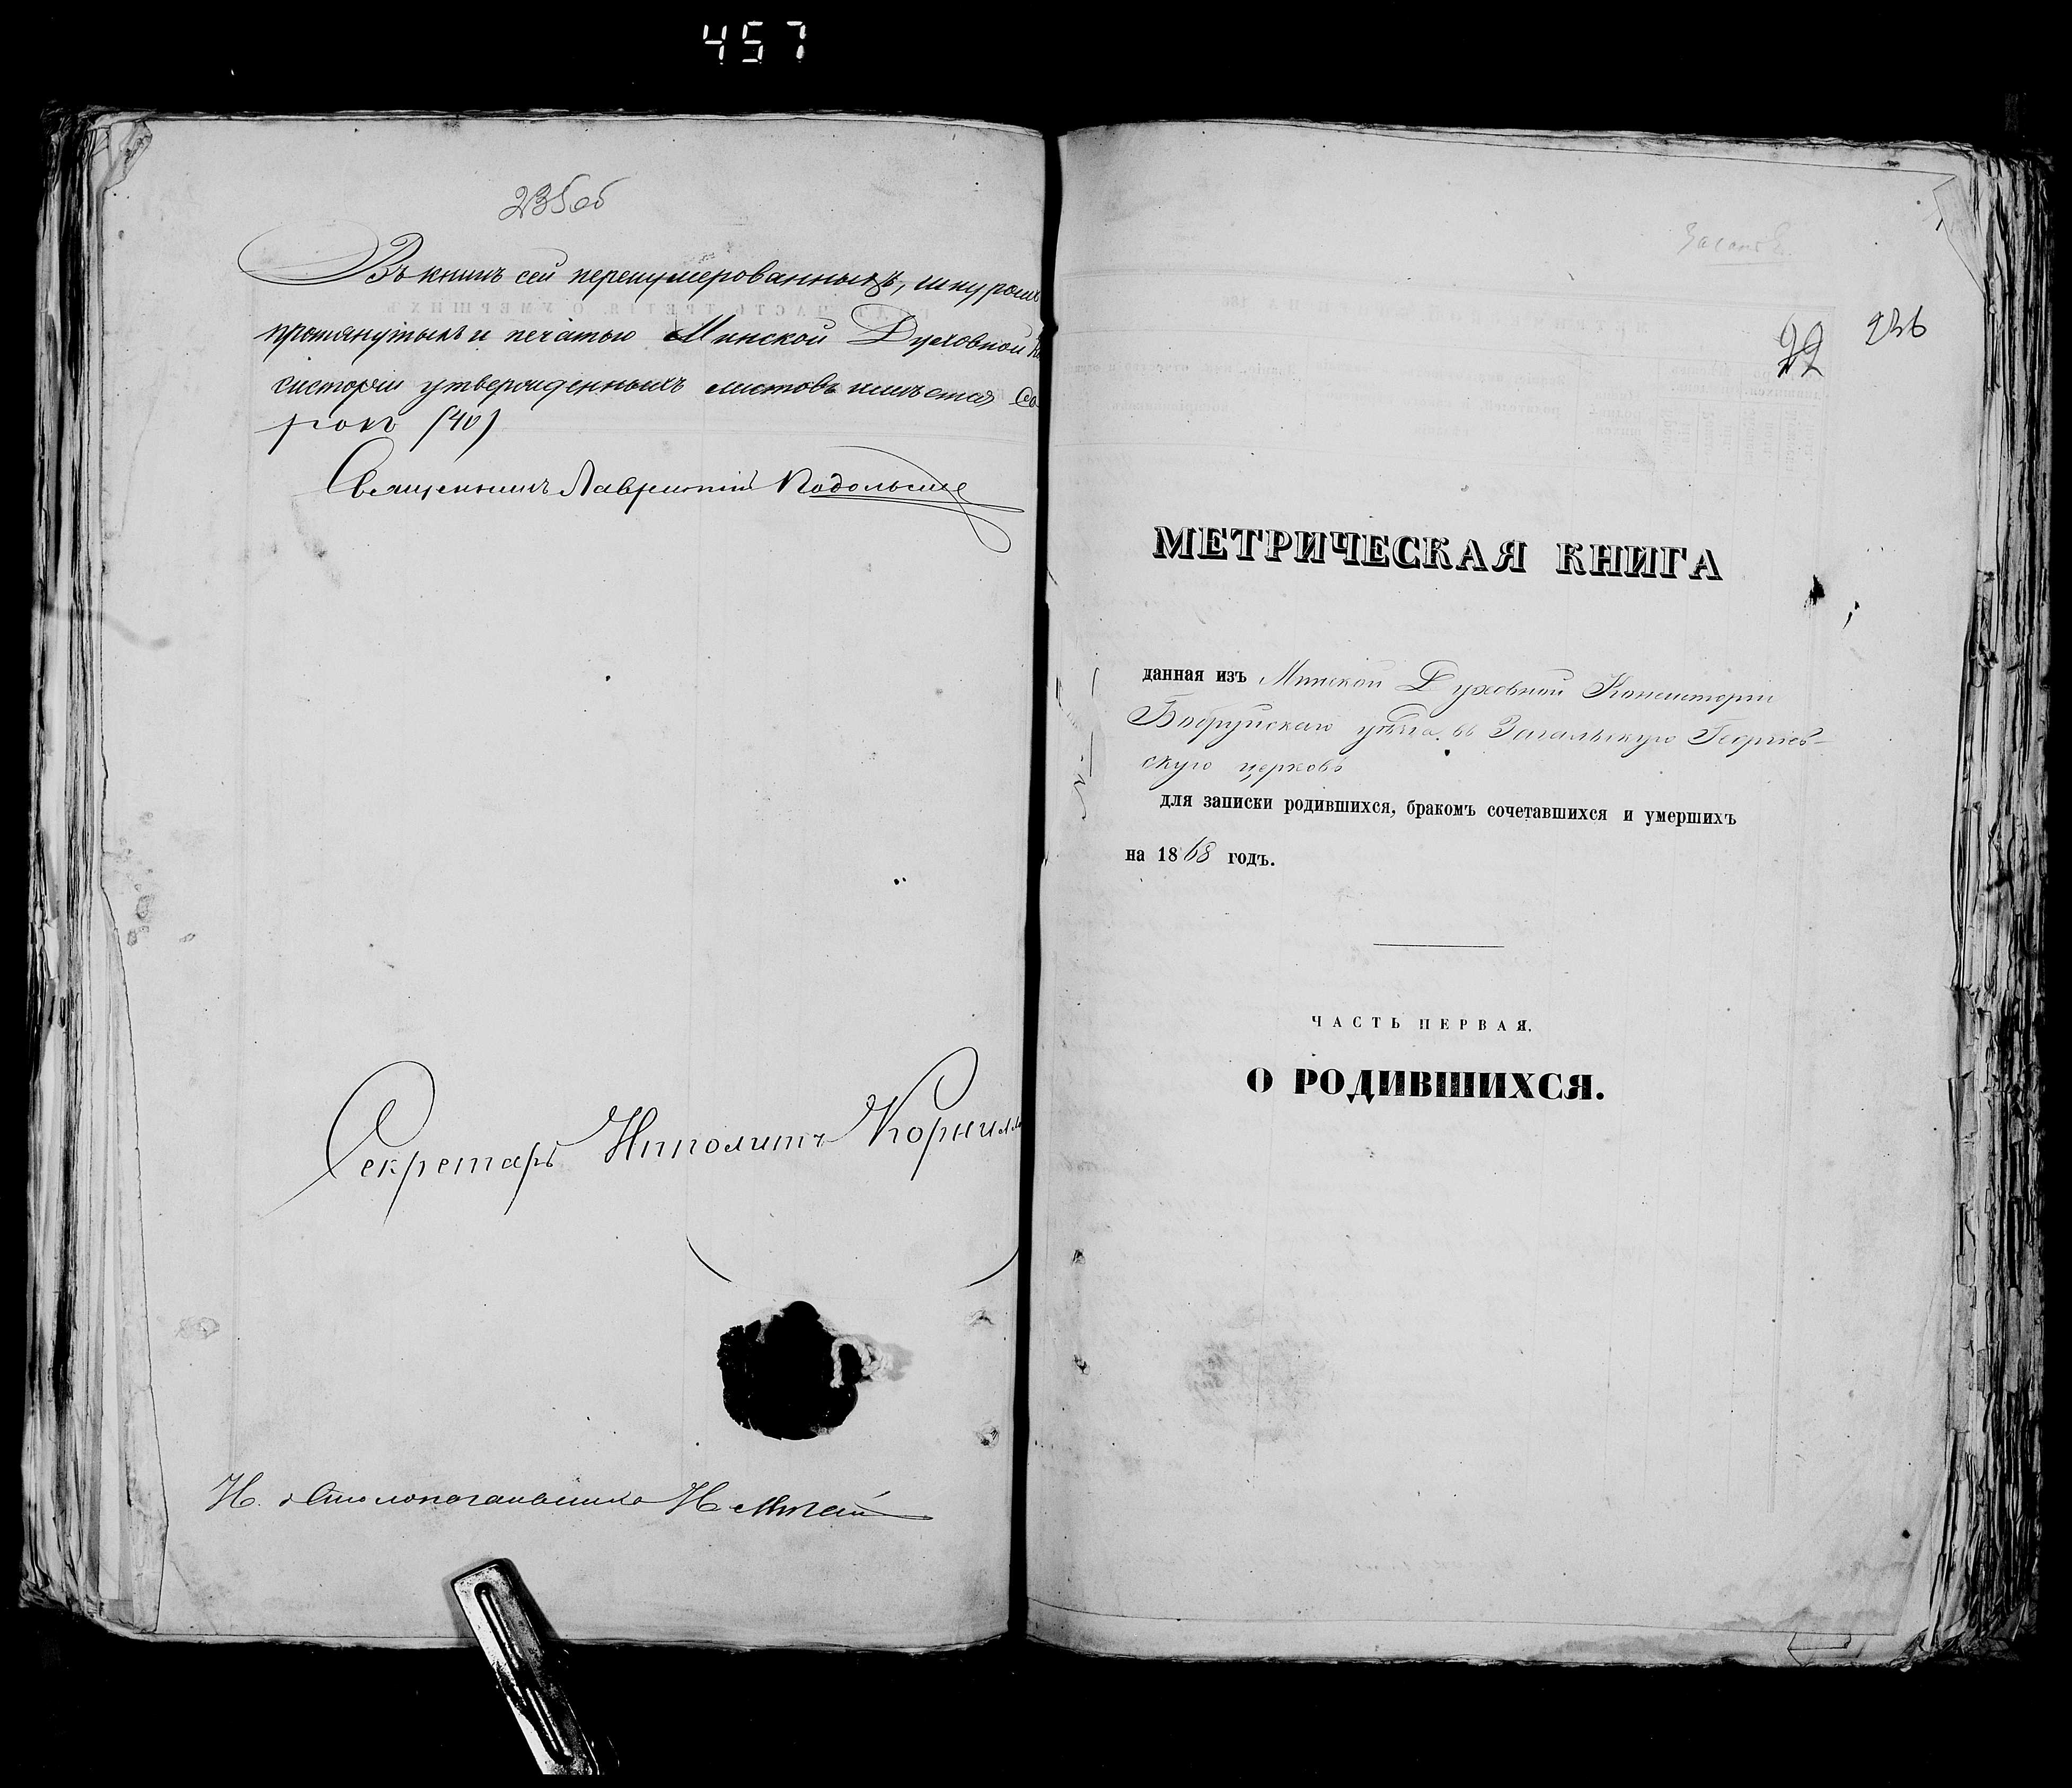 457
235об
Въ книгѣ сей перенумерованныхъ, шнуромъ
протянутыхъ и печатью Минской Духовной Ко
систоріи утвержденныхъ листовъ имѣется Со
рокъ (40)
Священникъ Лаврентій Подольскіе
Секретарь Ипполитъ Корнил
И. д. Столоначальника Н
22 236
МЕТРИЧЕСКАЯ КНИГА
данная изъ Минской Духовной Консисторіи
Бобруйскаго уѣзда въ Загальскую Георгіев-
скую церковь
для записки родившихся, бракомъ сочетавшихся и умершихъ
на 1868 годъ.
ЧАСТЬ ПЕРВАЯ.
О РОДИВШИХСЯ.